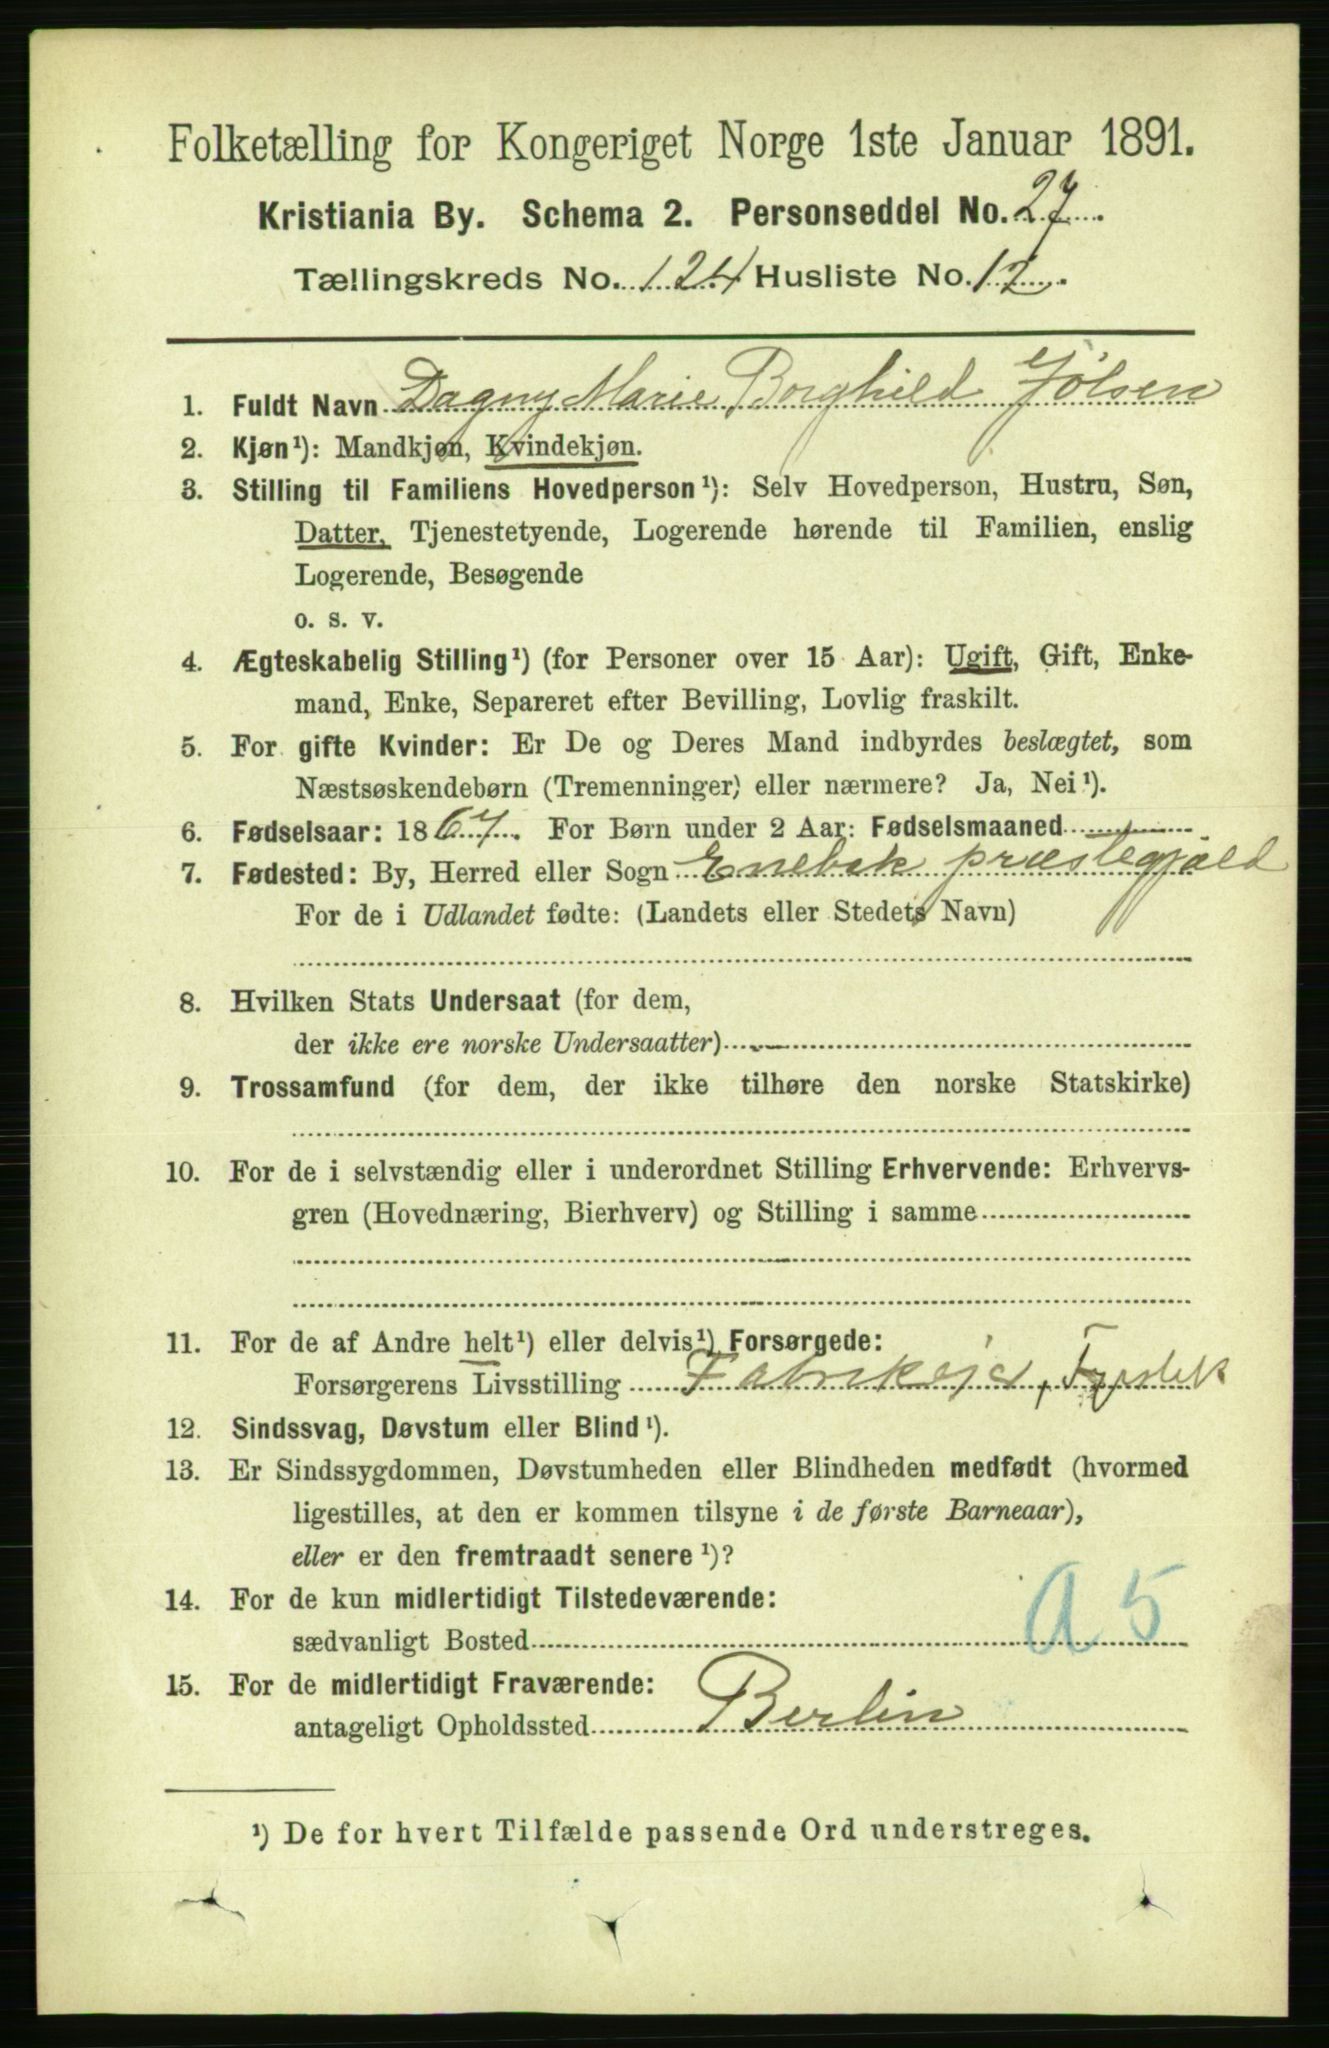 Folketælling for Kongeriget Norge 1ste Januar 1891.
Kristiania By. Schema 2. Personseddel No. 27
Tællingskreds No. 124 Husliste No. 12
1. Fuldt Navn Dagny Marie Borghild Jølsen
2. Kjøn¹): Mandkjøn, Kvindekjøn.
3. Stilling til Familiens Hovedperson¹): Selv Hovedperson, Hustru, Søn,
Datter, Tjenestetyende, Logerende hørende til Familien, enslig
Logerende, Besøgende
o. s. v.
4. Ægteskabelig Stilling¹) (for Personer over 15 Aar): Ugift, Gift, Enke-
mand, Enke, Separeret efter Bevilling, Lovlig fraskilt.
5. For gifte Kvinder: Er De og Deres Mand indbyrdes beslægtet, som
Næstsøskendebørn (Tremenninger) eller nærmere? Ja, Nei¹).
6. Fødselsaar: 1867. For Børn under 2 Aar: Fødselsmaaned
7. Fødested: By, Herred eller Sogn Enebak præstegjæld
For de i Udlandet fødte: (Landets eller Stedets Navn)
8. Hvilken Stats Undersaat (for dem,
der ikke ere norske Undersaatter)
9. Trossamfund (for dem, der ikke tilhøre den norske Statskirke)
10. For de i selvstændig eller i underordnet Stilling Erhvervende: Erhvervs-
gren (Hovednæring, Bierhverv) og Stilling i samme
11. For de af Andre helt¹) eller delvis¹) Forsørgede:
Forsørgerens Livsstilling Fabrikejer,
12. Sindssvag, Døvstum eller Blind¹).
13. Er Sindssygdommen, Døvstumheden eller Blindheden medfødt (hvormed
ligestilles, at den er kommen tilsyne i de første Barneaar),
eller er den fremtraadt senere¹)?
14. For de kun midlertidigt Tilstedeværende:
sædvanligt Bosted A 5
15. For de midlertidigt Fraværende:
antageligt Opholdssted Berlin
¹) De for hvert Tilfælde passende Ord understreges.